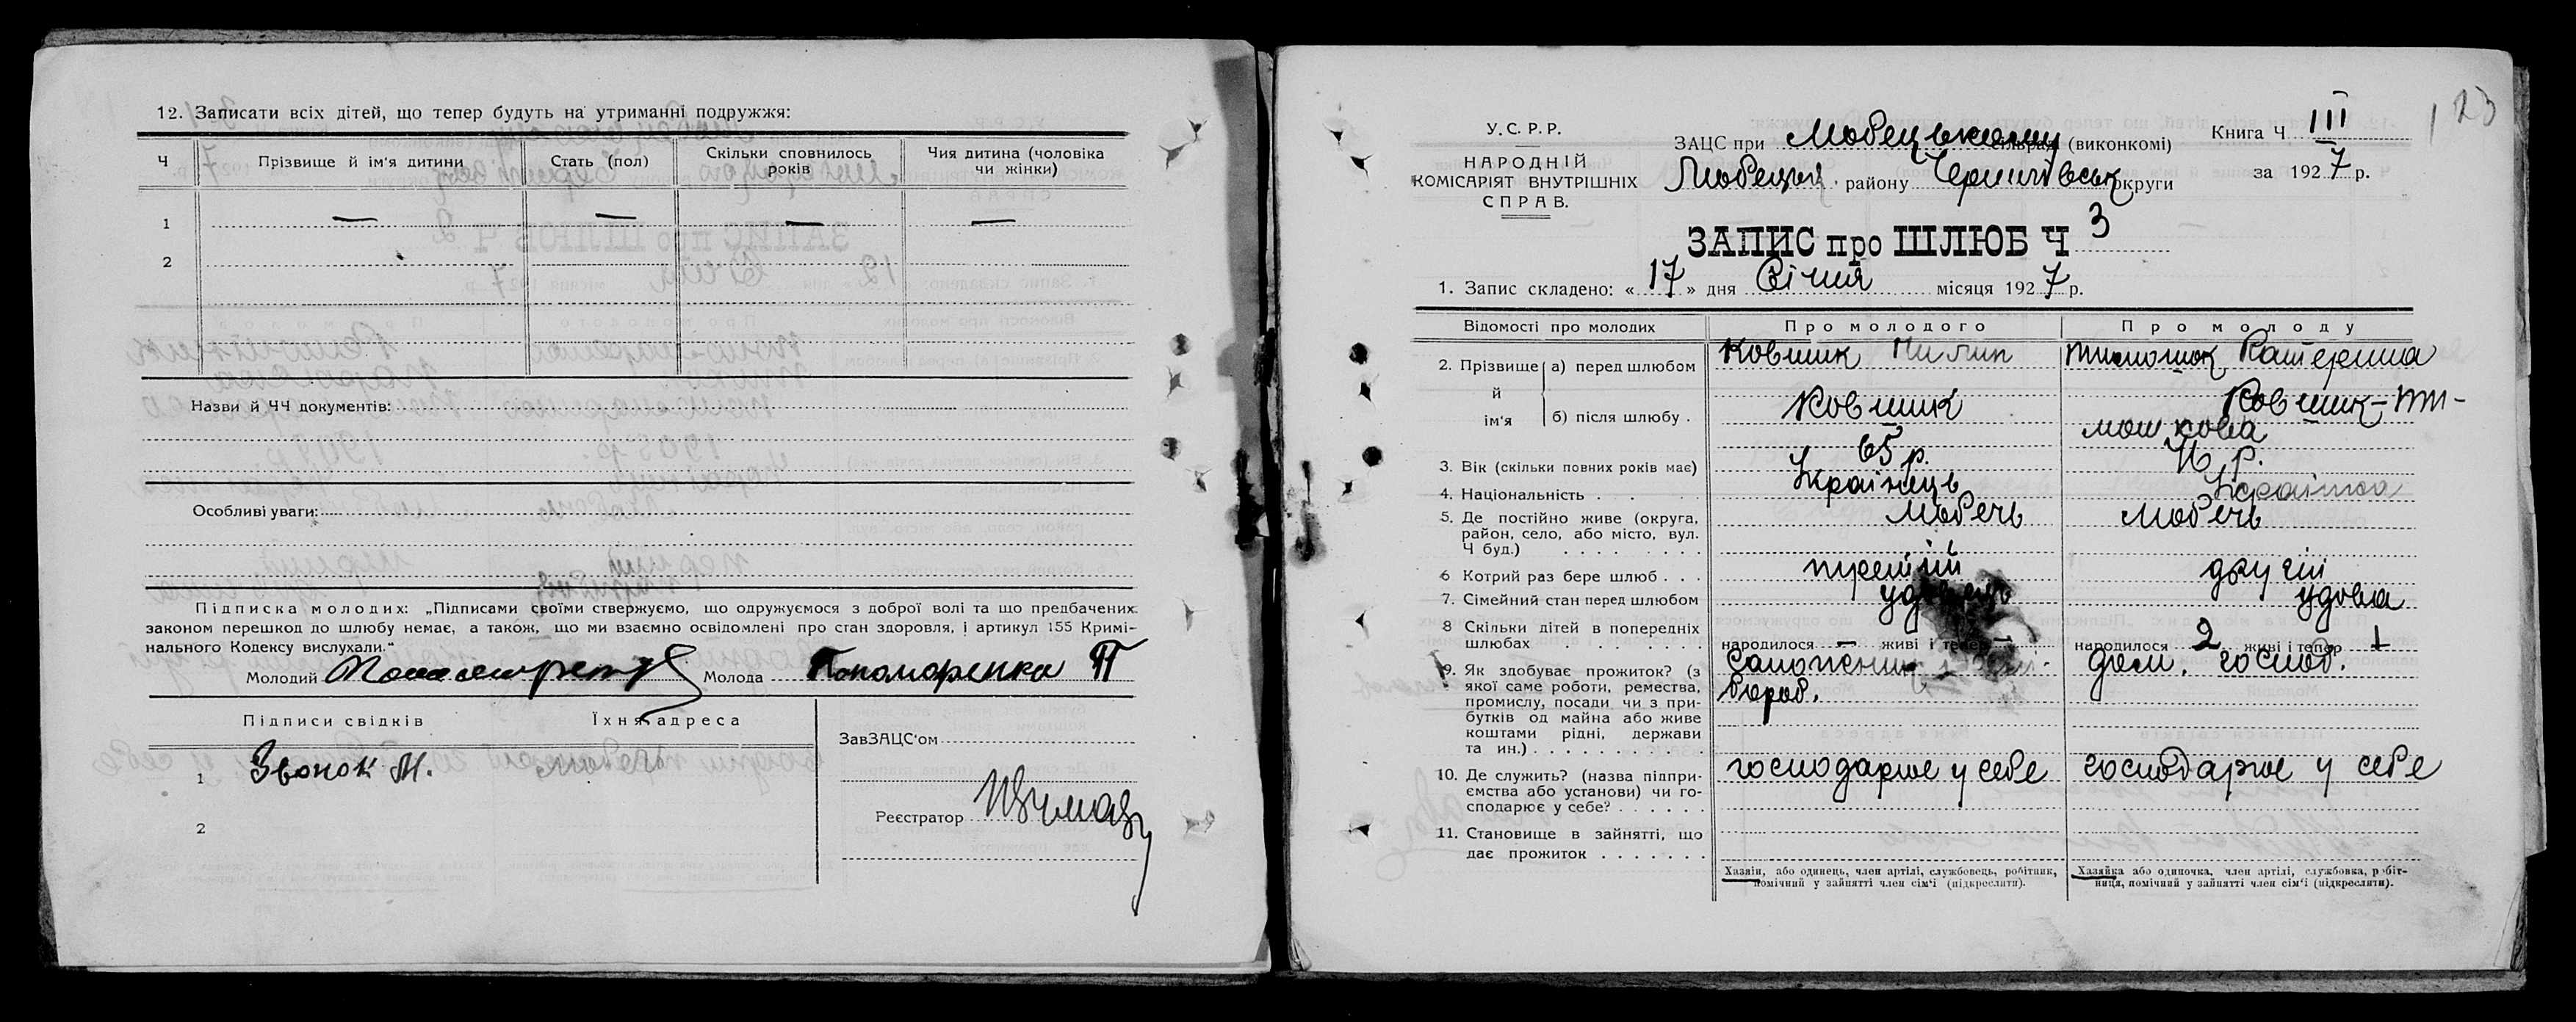 12. Записати всіх дітей, що тепер будуть на утриманні подружжя:
Ч Прізвище й ім'я дитини Стать (пол) Скільки сповнилось років Чия дитина (чоловіка чи жінки)
1 — — — —
2
Назви й ЧЧ документів:
Особливі уваги:
Підписка молодих: „Підписами своїми ствержуємо, що одружуємося з доброї волі та що предбачених
законом перешкод до шлюбу немає, а також, що ми взаємно освідомлені про стан здоровля, і артикул 155 Кримі-
нального Кодексу вислухали."
Молодий Молода Пономаренка П
Підписи свідків Їхня адреса
ЗавЗАЦС'ом
1 Звонок М. Любечь
Реєстратор
2
123
У.С.Р.Р.
НАРОДНІЙ
КОМІСАРІЯТ ВНУТРІШНІХ
СПРАВ.
ЗАЦС при Любецькому сільраді (виконкомі)
Любецький району Чернигівськ округи
Книга Ч III
за 1927 р.
ЗАПИС про ШЛЮБ Ч 3
1. Запис складено: « 17 » дня Січня місяця 1927 р.
Відомості про молодих Про молодого Про молоду
2. Прізвище й ім'я
а) перед шлюбом Ковшик Пилип Тимошок Катерина
б) після шлюбу . Ковшик Ковшик-Ти-
мошкова
3. Вік (скільки повних років має) 65 р.
4. Національність . . Українець Українка
5. Де постійно живе (округа, Любечь Любечь
район, село, або місто, вул.
Ч буд.) . . . . . . .
6 Котрий раз бере шлюб . . . третій другій
7. Сімейний стан перед шлюбом удовець удова
8 Скільки дітей в попередніх
шлюбах . . . . . . народилося — живі і тепер — народилося 2 живі і тепер 1
9. Як здобуває прожиток? (з дом. господ.
якої саме роботи, ремества,
промислу, посади чи з при-
бутків од майна або живе
коштами рідні, держави
та ин.) . . . . . . . . .
10. Де служить? (назва підпри- господарює у себе господарює у себе
ємства або установи) чи го-
сподарює у себе? . . . . . .
11. Становище в зайнятті, що
дає прожиток . . . . . . .
Хазяїн, або одинець, член артілі, службовець, робітник,
помічний у зайнятті член сім'ї (підкреслити).
Хазяйка або одиночка, член артілі, службовка, робіт-
ниця, помічний у зайнятті член сім'ї (підкреслити).